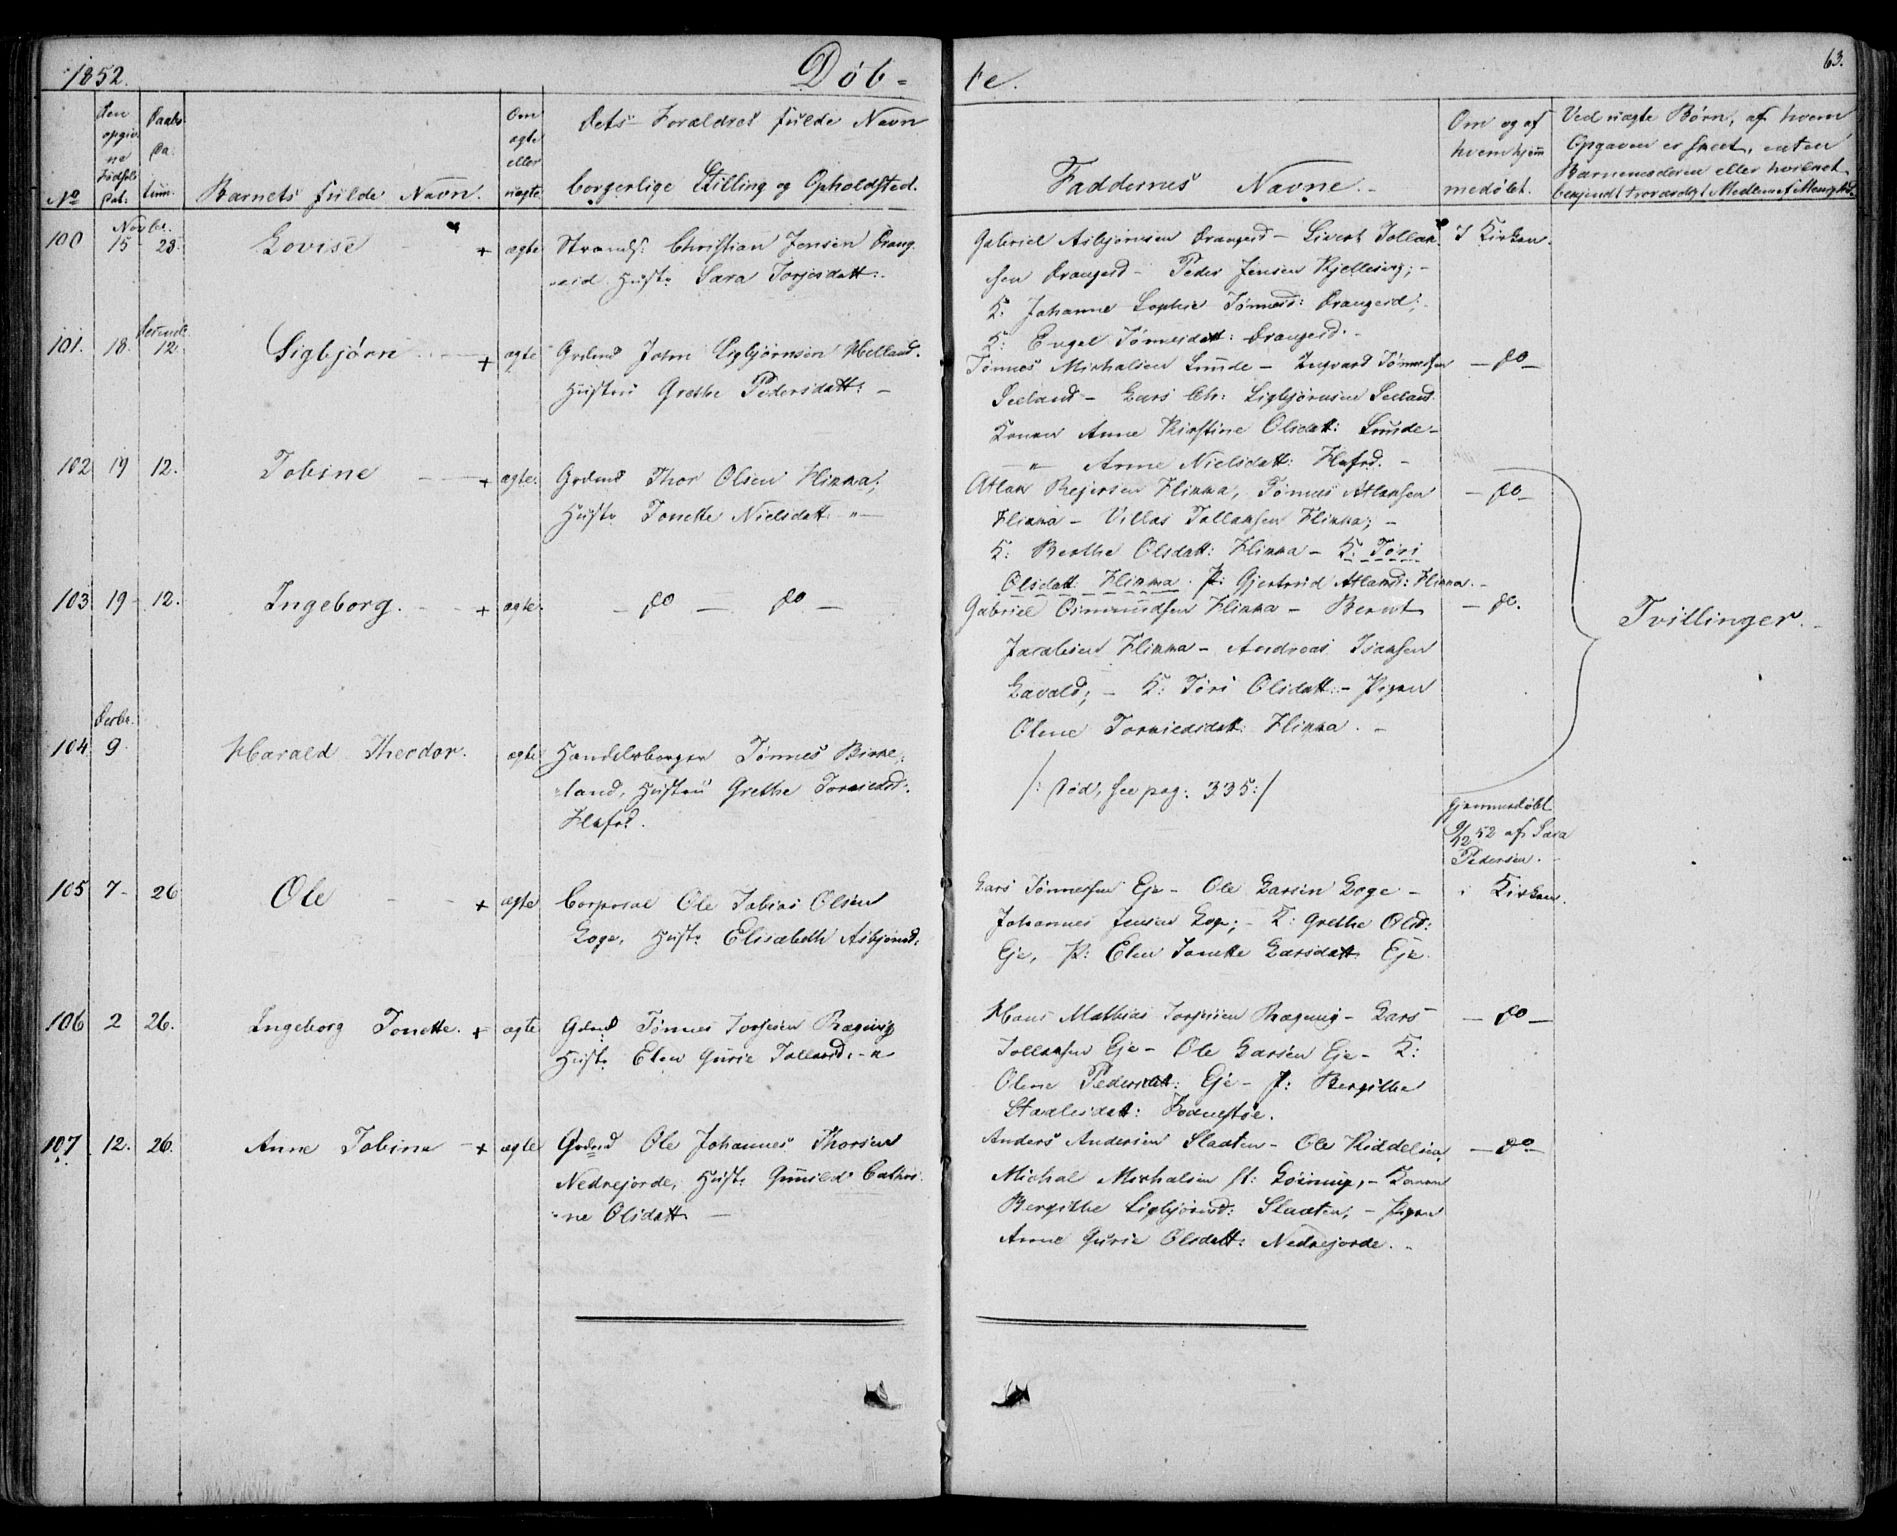 1852.
Døb-
te.
63.
No
Den opgivne Fødsels Dat:
Daabs Da: tum.
Barnets fulde Navn.
Om ægte eller uægte
Dets Forældres fulde Navn
borgerlige Stilling og Opholdsted.
Faddernes Navne. -
Om og af hvem hjem medøbt.
Ved uægte Børn, af hvem
Opgaven er skeet, enten
Barnemoderen eller hvilket
Novbr.
100 15 - 28. Lovise + ægte
Strands: Christian Jensen Drang
eid, Hust: Sara Torjesdatt:.
Gabriel Asbjørnsen Drangeid - Sivert Tollak
sen Drangeid - Peder Jensen Kjellesvig; -
K: Johanne Sophie Tønnesd: Drangeid;
K: Engel Tønnesdatt: Drangeid. -
I Kirken.
Decemb:
101. 18. 12 Sigbjørn + ægte
Grdmd John Sigbjørnsen Helland.
Hustru Grethe Pedersdatt: -
Tønnes Michalsen Lunde - Ingvard Tønnessen
Seeland - Lars Chr: Sigbjørnsen Seeland.
Konen Anne Kirstine Olsdatt: Lunde -
- " - Anne Nielsdatt: -
- do -
102 19 12. Tobine + ægte.
Grdmd Thor Olsen Flikka;
Hust: Tonette Nielsdatt. -
Atlak Rejersen Flikka, Tønnes Atlaksen
Flikka - Villas Tollaksen Flikka; -
K: Berthe Olsdatt: Flikka - K: Tøri
Olsdatt. Flikka. P: Gjertrud Atlaksd: Flikka. -
- do -
103 19 - 12. Ingeborg. + ægte.
- do - do -
Gabriel Osmundsen Flikka - Berent
Jacobsen Flikka - Andreas Isaksen
Lavold; - K: Tøri Olsdatt: - Pigen
Olene Torkieldsdatt: Flikka. -
- do.
Tvillinger. -
Decbr.
104. 9. Harald Theodor. ægte
Handelsborger Tønnes Birke-
land, Hustru Grethe Torkieldsd:
/: Død, see pag: 335:/
hjemmedøbt
9/12 52 af Sara
Pedersen. -
105 7 - 26 Ole + ægte
Corporal Ole Tobias Olsen
Loge, Hust: Elisabeth Asbjørnsd:
Lars Tønnessen Eje - Ole Larsen Loge -
Johannes Jensen Loge; - K: Grethe Olsd:
Eje, P: Elen Tonette Larsdatt Eje.
i Kirken.
106 2 26. Ingeborg Tonette. + ægte
Grdmd Tønnes Torjesen Rægevig
Hust: Elen Gurie Tollaksd: -
Hans Mathias Torjesen Rægevig - Lars
Tollaksen Eje - Ole Larsen Eje - K:
Olene Pedersdatt: Eje - P: Bergithe
- do -
107 12. 26. Anne Tobine - + ægte
Grdmd Ole Johannes Thorsen
Nedrejorde, Hust: Gunild Cathri
ne Olsdatt -
Anders Andersen Slaaten - Ole Kiddelsen
Michal Michalsen - Konen
Bergithe Sigbjørnsd: Slaaten, - Pigen
Anne Gurie Olsdatt: Nedrejorde. -
- do -